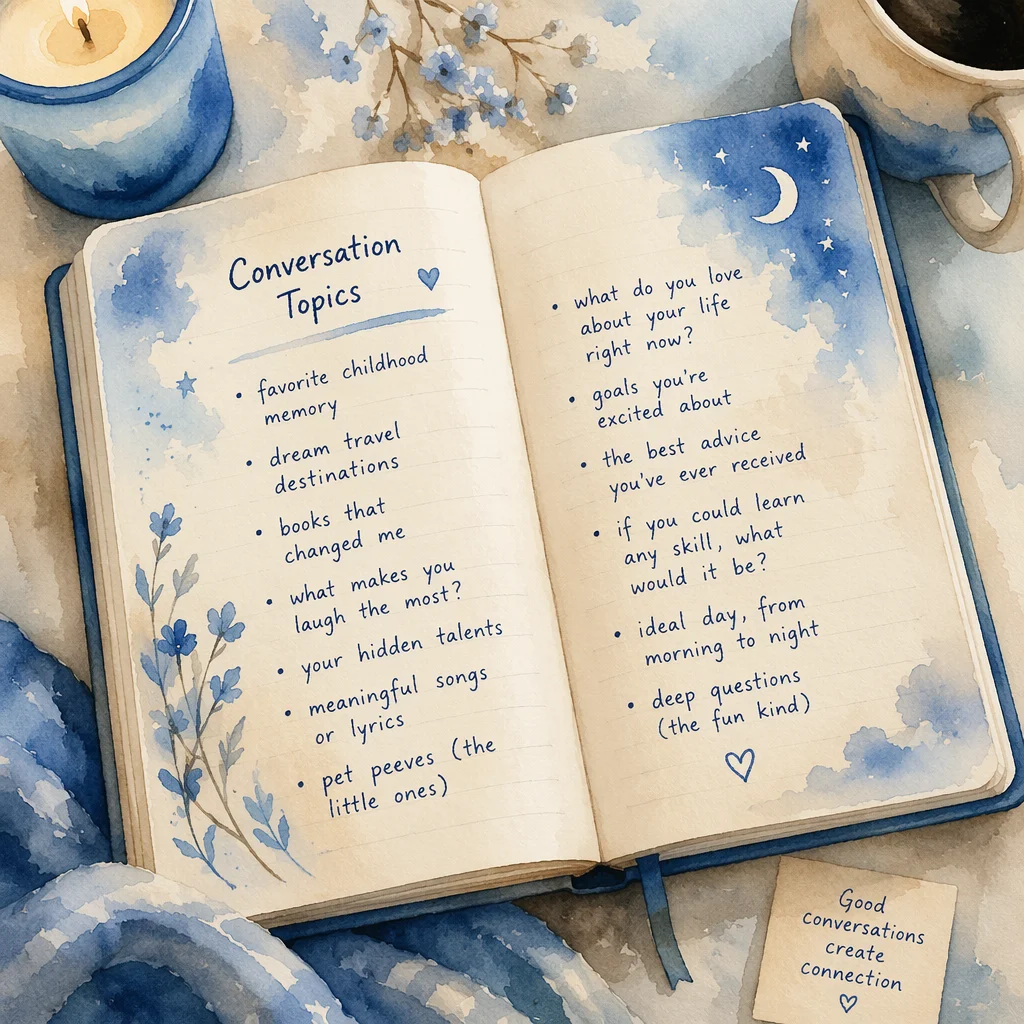 Conversation
Topics
• favorite childhood
memory
• dream travel
destinations
• books that
changed me
• what makes you
laugh the most?
• your hidden talents
• meaningful songs
or lyrics
• pet peeves (the
little ones)
• what do you love
about your life
right now?
• goals you're
excited about
• the best advice
you've ever received
• if you could learn
any skill, what
would it be?
• ideal day, from
morning to night
• deep questions
(the fun kind)
Good
conversations
create
connection